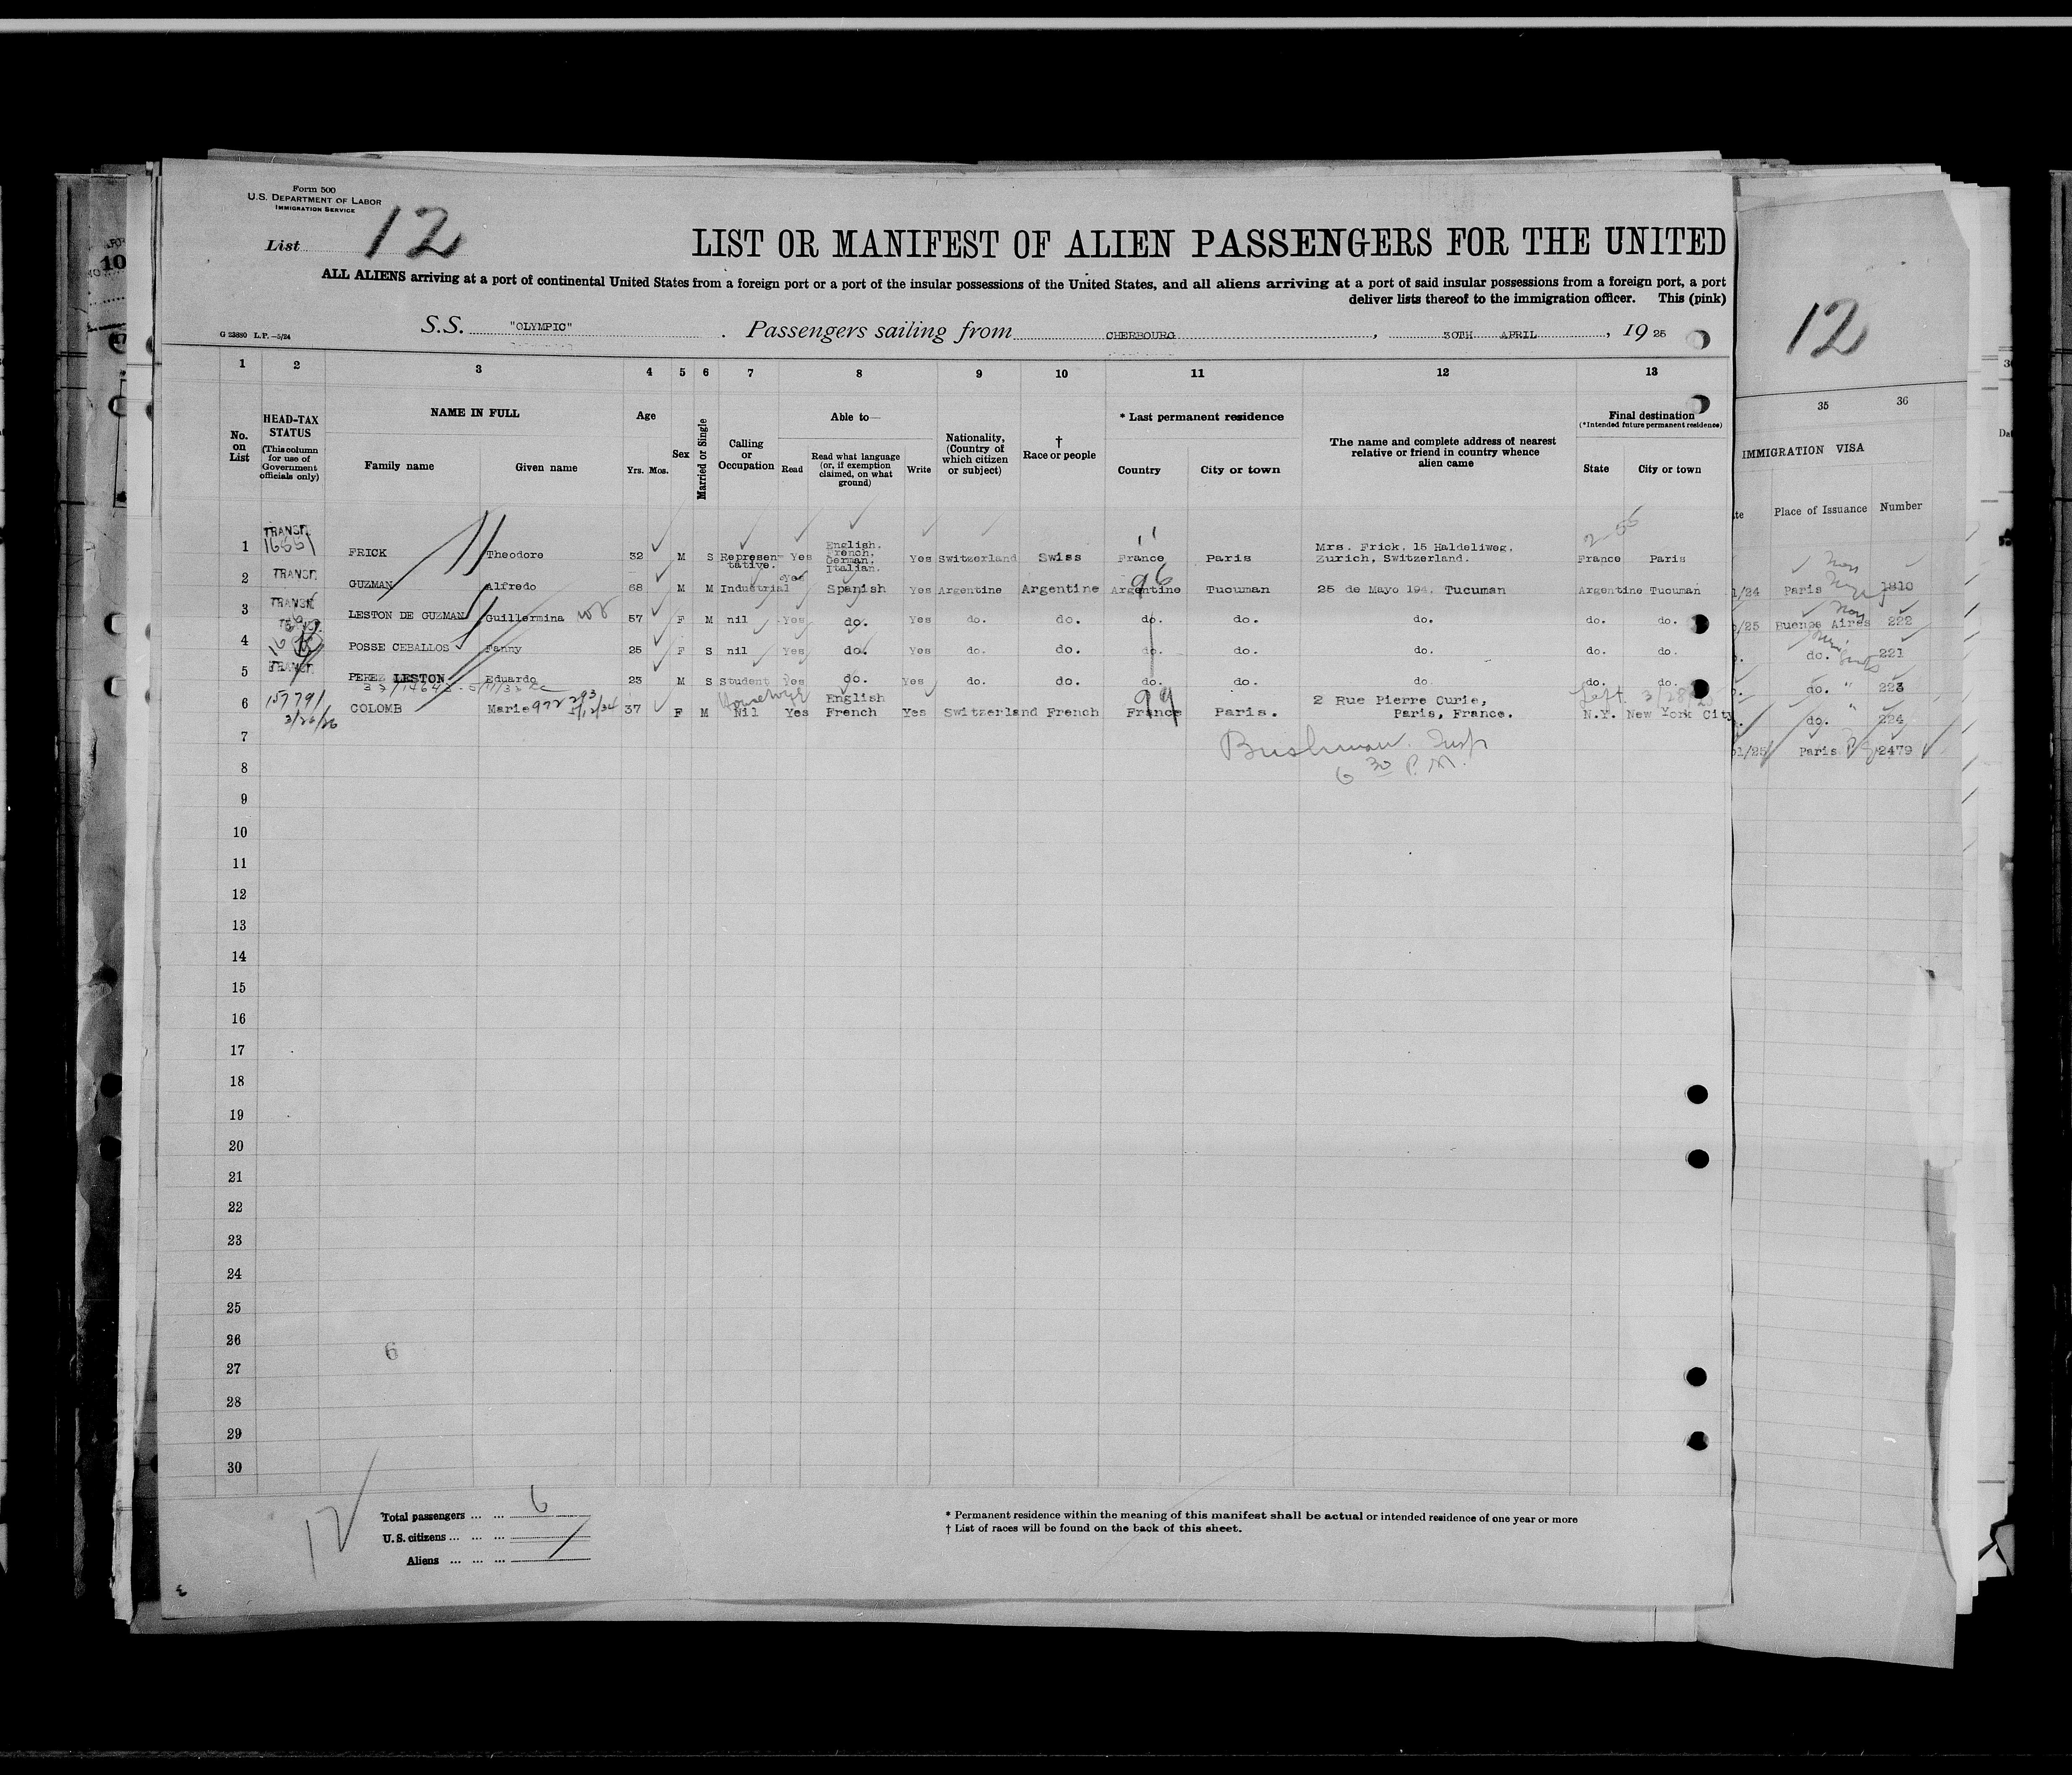 Form 500
U.S. DEPARTMENT OF LABOR
IMMIGRATION SERVICE
List 12
LIST OR MANIFEST OF ALIEN PASSENGERS FOR THE UNITED
ALL ALIENS arriving at a port of continental United States from a foreign port or a port of the insular possessions of the United States, and all aliens arriving at a port of said insular possessions from a foreign port, a port
deliver lists thereof to the immigration officer. This (pink)
G 23880 L.P.—5/24
S.S. "OLYMPIC" . Passengers sailing from CHERBOURG , 30TH APRIL , 19 25
12
1 2 3 4 5 6 7 8 9 10 11 12 13
35 36
No. on List
HEAD-TAX STATUS
(This column for use of Government officials only)
NAME IN FULL
Family name Given name
Age
Yrs. Mos.
Sex
Married or Single
Calling or Occupation
Able to—
Read
Read what language (or, if exemption claimed, on what ground)
Write
Nationality, (Country of which citizen or subject)
† Race or people
* Last permanent residence
Country City or town
The name and complete address of nearest relative or friend in country whence alien came
Final destination
(*Intended future permanent residence)
State City or town
IMMIGRATION VISA
Place of Issuance Number
1 TRANSIT FRICK Theodore 32 M S Representative. Yes English. French. German. Italian. Yes Switzerland Swiss France Paris Mrs. Frick, 15 Haldeliweg, Zurich, Switzerland. France Paris
2 TRANSIT GUZMAN Alfredo 68 M M Industrial Yes Spanish Yes Argentine Argentine 96 Argentine Tucuman 25 de Mayo 194, Tucuman Argentine Tucuman
3 TRANSIT LESTON DE GUZMAN Guillermina 57 F M nil Yes do. Yes do. do. do. do. do. do. do.
4 POSSE CEBALLOS Fanny 25 F S nil Yes do. Yes do. do. do. do. do. do. do.
5 TRANSIT PEREZ LESTON Eduardo 23 M S Student Yes do. Yes do. do. do. do. do. do. do.
6 157791 3/26/26 COLOMB Marie 37 F M Housewife Nil Yes English French Yes Switzerland French 99 France Paris. 2 Rue Pierre Curie, Paris, France. Left 3/28/25 N.Y. New York City
1/24 Paris 1810
/25 Buenos Aires 222
do. 221
do. " 223
do. " 224
1/25 Paris 2479
7 Bushman. Insp
6 30 P.M.
8
9
10
11
12
13
14
15
16
17
18
19
20
21
22
23
24
25
26
6
27
28
29
30
12
Total passengers ... ... 6
U.S. citizens ... ... ...
Aliens ... ... ...
* Permanent residence within the meaning of this manifest shall be actual or intended residence of one year or more
† List of races will be found on the back of this sheet.